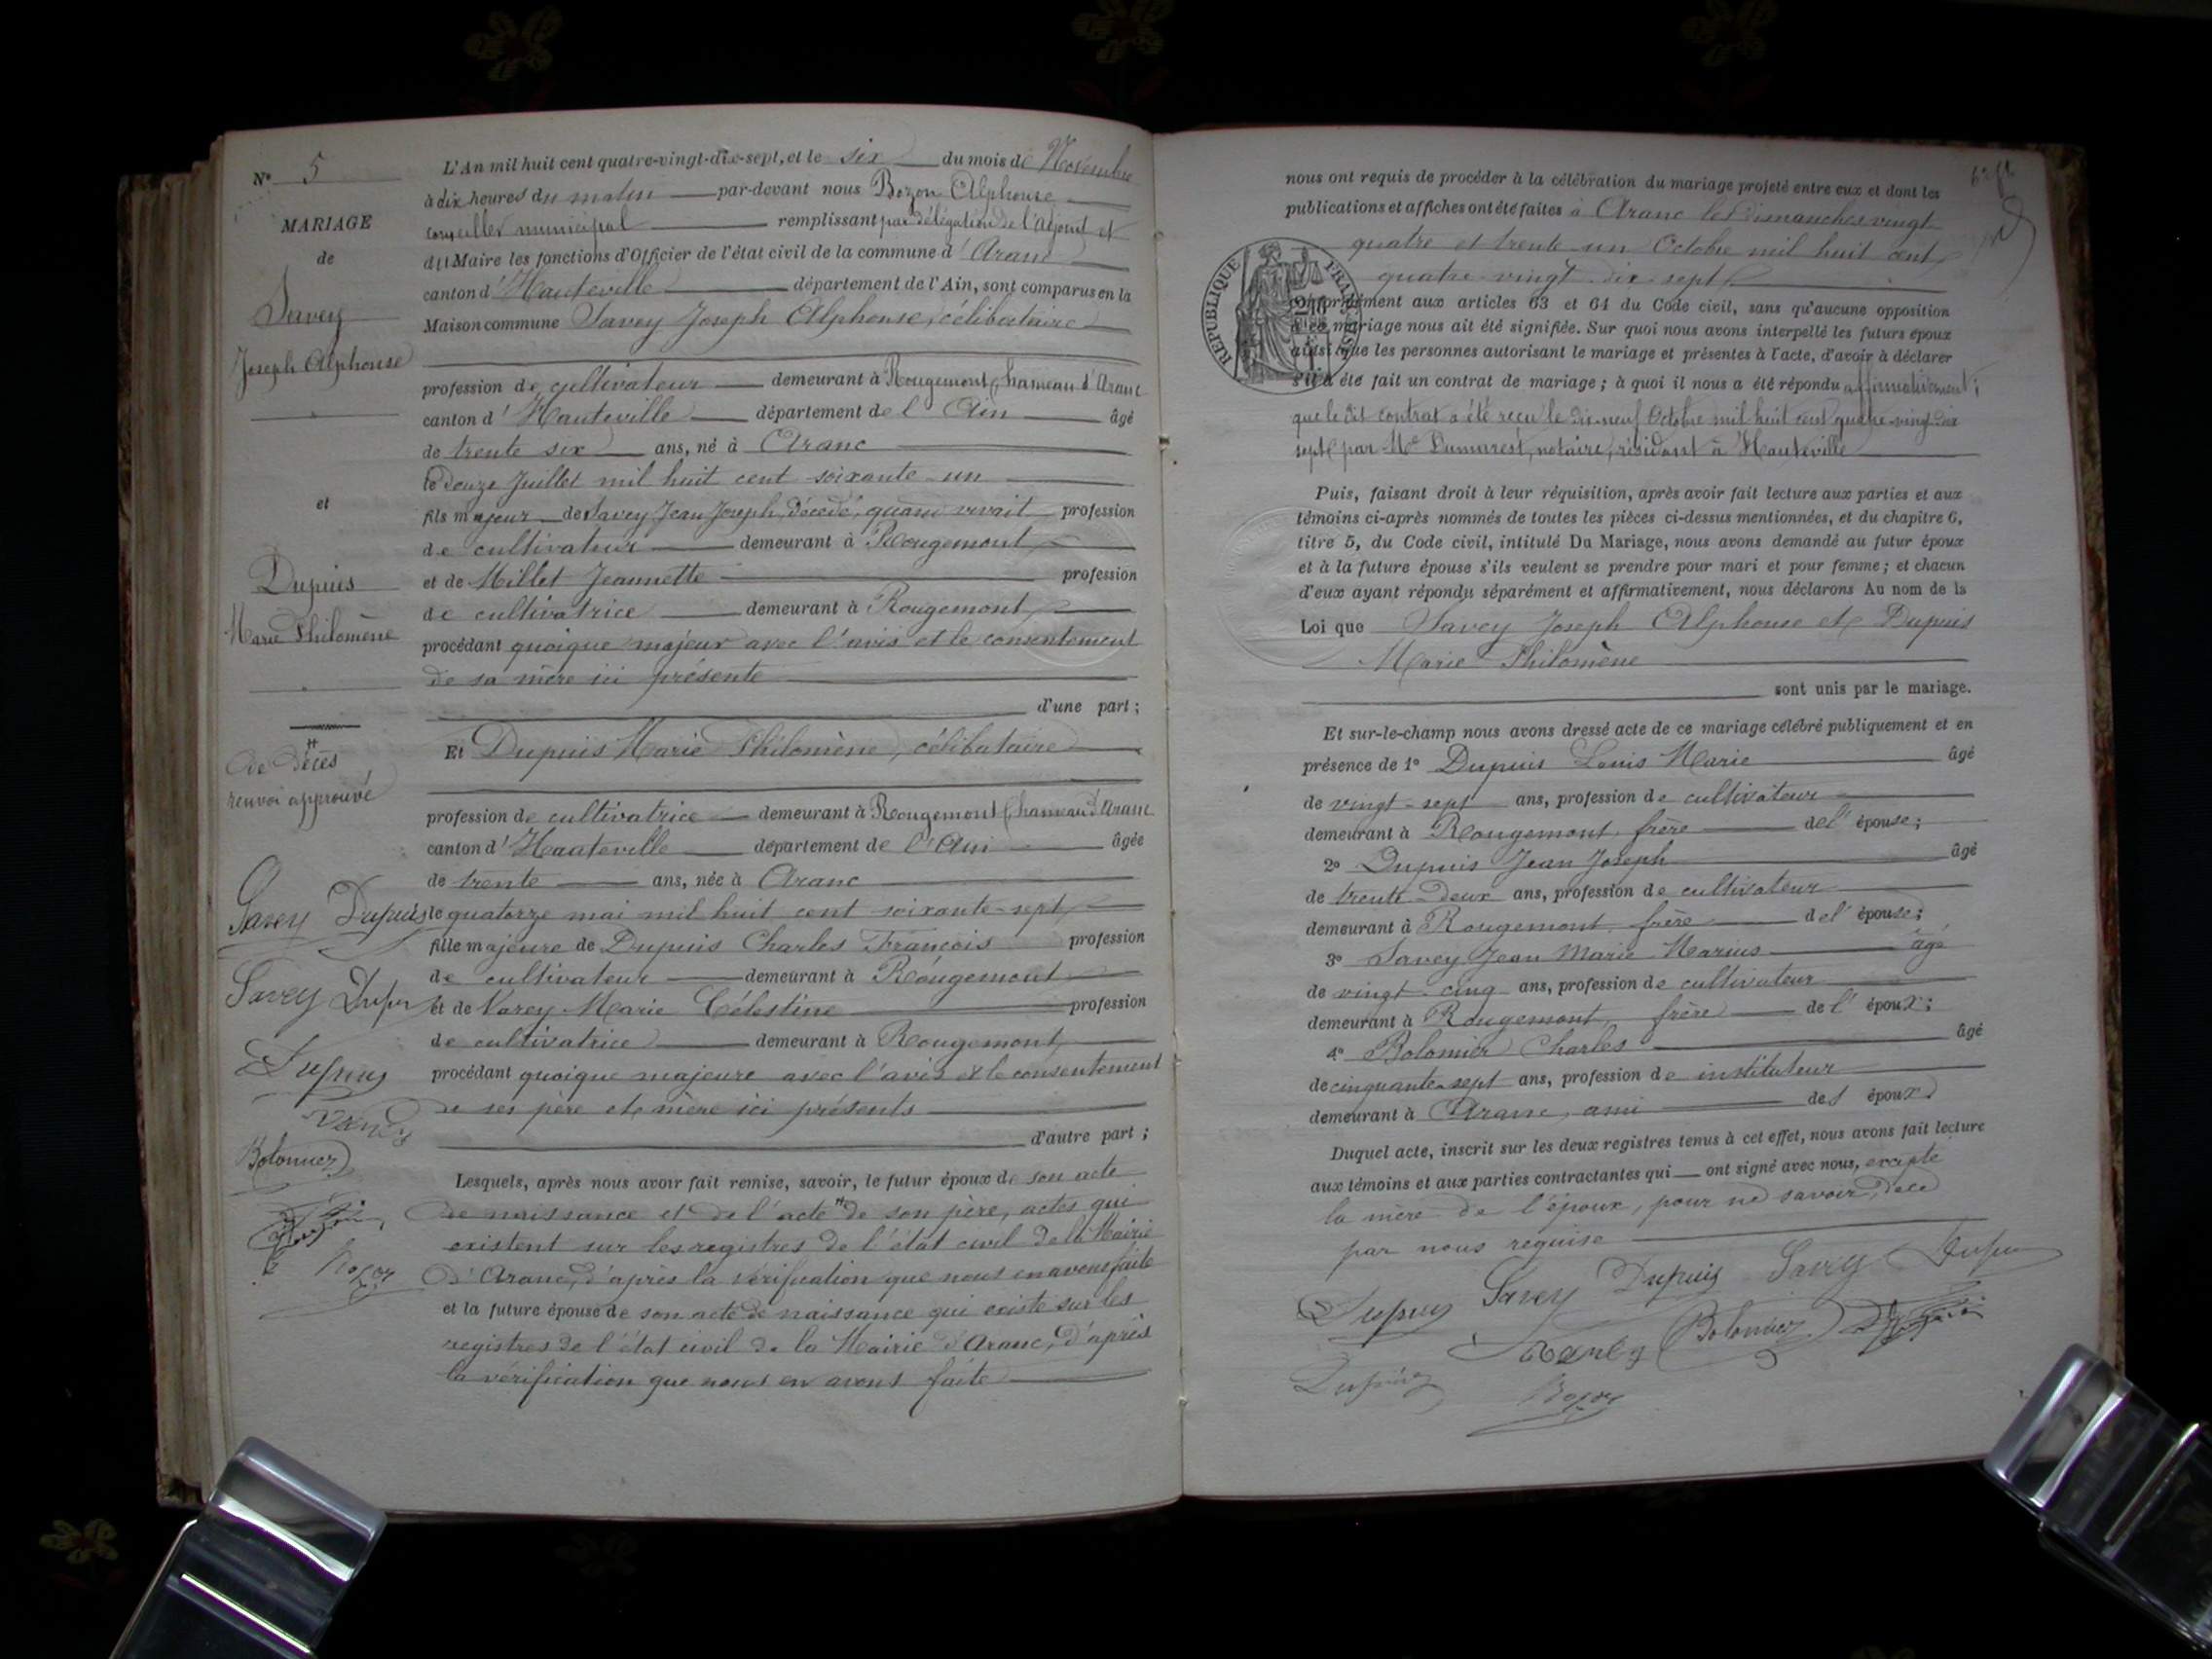 N° 5
MARIAGE
de
Savey
Joseph Alphonse
et
Dupuis
Marie Philomène
de décès
renvoi approuvé
Savey Dupuis
Savey
Dupuis
Bolomier
Bozon
L'An mil huit cent quatre-vingt-dix-sept, et le six du mois de Novembre
à dix heures du matin par-devant nous Bozon Alphonse
conseiller municipal remplissant par délégation de l'Adjoint et
du Maire les fonctions d'Officier de l'état civil de la commune d'Aranc
canton d'Hauteville département de l'Ain, sont comparus en la
Maison commune Savey Joseph Alphonse, célibataire
profession de cultivateur demeurant à Rougemont, hameau d'Aranc
canton d'Hauteville département de l'Ain âgé
de trente six ans, né à Aranc
le douze Juillet mil huit cent soixante-un
fils majeur de Savey Jean Joseph, décédé, quand vivait profession
de cultivateur demeurant à Rougemont
et de Millet Jeannette profession
de cultivatrice demeurant à Rougemont,
procédant quoique majeur avec l'avis et le consentement
de sa mère ici présente
d'une part ;
Et Dupuis Marie Philomène, célibataire
profession de cultivatrice demeurant à Rougemont, hameau d'Aranc
canton d'Hauteville département de l'Ain âgée
de trente ans, née à Aranc
le quatorze mai mil huit cent soixante-sept
fille majeure de Dupuis Charles François profession
de cultivateur demeurant à Rougemont
et de Varey Marie Célestine profession
de cultivatrice demeurant à Rougemont,
procédant quoique majeure avec l'avis et le consentement
de ses père et mère ici présents
d'autre part ;
Lesquels, après nous avoir fait remise, savoir, le futur époux de son acte
de naissance et de l'acte # de son père, actes qui
existent sur les registres de l'état civil de la Mairie
d'Aranc, d'après la vérification que nous en avons faite
et la future épouse de son acte de naissance qui existe sur les
registres de l'état civil de la Mairie d'Aranc, d'après
la vérification que nous en avons faite
nous ont requis de procéder à la célébration du mariage projeté entre eux et dont les
publications et affiches ont été faites à Aranc les Dimanches vingt
quatre et trente-un Octobre mil huit cent
quatre-vingt-dix-sept
REPUBLIQUE FRANÇAISE
conformément aux articles 63 et 64 du Code civil, sans qu'aucune opposition
à ce mariage nous ait été signifiée. Sur quoi nous avons interpellé les futurs époux
ainsi que les personnes autorisant le mariage et présentes à l'acte, d'avoir à déclarer
s'il a été fait un contrat de mariage ; à quoi il nous a été répondu affirmativement ;
que le dit contrat a été reçu le dix-neuf Octobre mil huit cent quatre-vingt-dix
sept par Me Dumarest, notaire, résidant à Hauteville
Puis, faisant droit à leur réquisition, après avoir fait lecture aux parties et aux
témoins ci-après nommés de toutes les pièces ci-dessus mentionnées, et du chapitre 6,
titre 5, du Code civil, intitulé Du Mariage, nous avons demandé au futur époux
et à la future épouse s'ils veulent se prendre pour mari et pour femme ; et chacun
d'eux ayant répondu séparément et affirmativement, nous déclarons Au nom de la
Loi que Savey Joseph Alphonse et Dupuis
Marie Philomène
sont unis par le mariage.
Et sur-le-champ nous avons dressé acte de ce mariage célébré publiquement et en
présence de 1° Dupuis Louis Marie âgé
de vingt-sept ans, profession de cultivateur
demeurant à Rougemont, frère de l'épouse ;
2° Dupuis Jean Joseph âgé
de trente-deux ans, profession de cultivateur
demeurant à Rougemont, frère de l'épouse ;
3° Savey Jean Marie Marius âgé
de vingt-cinq ans, profession de cultivateur
demeurant à Rougemont, frère de l'époux ;
4° Bolomier Charles âgé
de cinquante-sept ans, profession de instituteur
demeurant à Aranc, ami des époux
Duquel acte, inscrit sur les deux registres tenus à cet effet, nous avons fait lecture
aux témoins et aux parties contractantes qui ont signé avec nous, excepté
la mère de l'époux, pour ne savoir, de ce
par nous requise
Dupuis Savey Dupuis Savey
Bolomier
Bozon